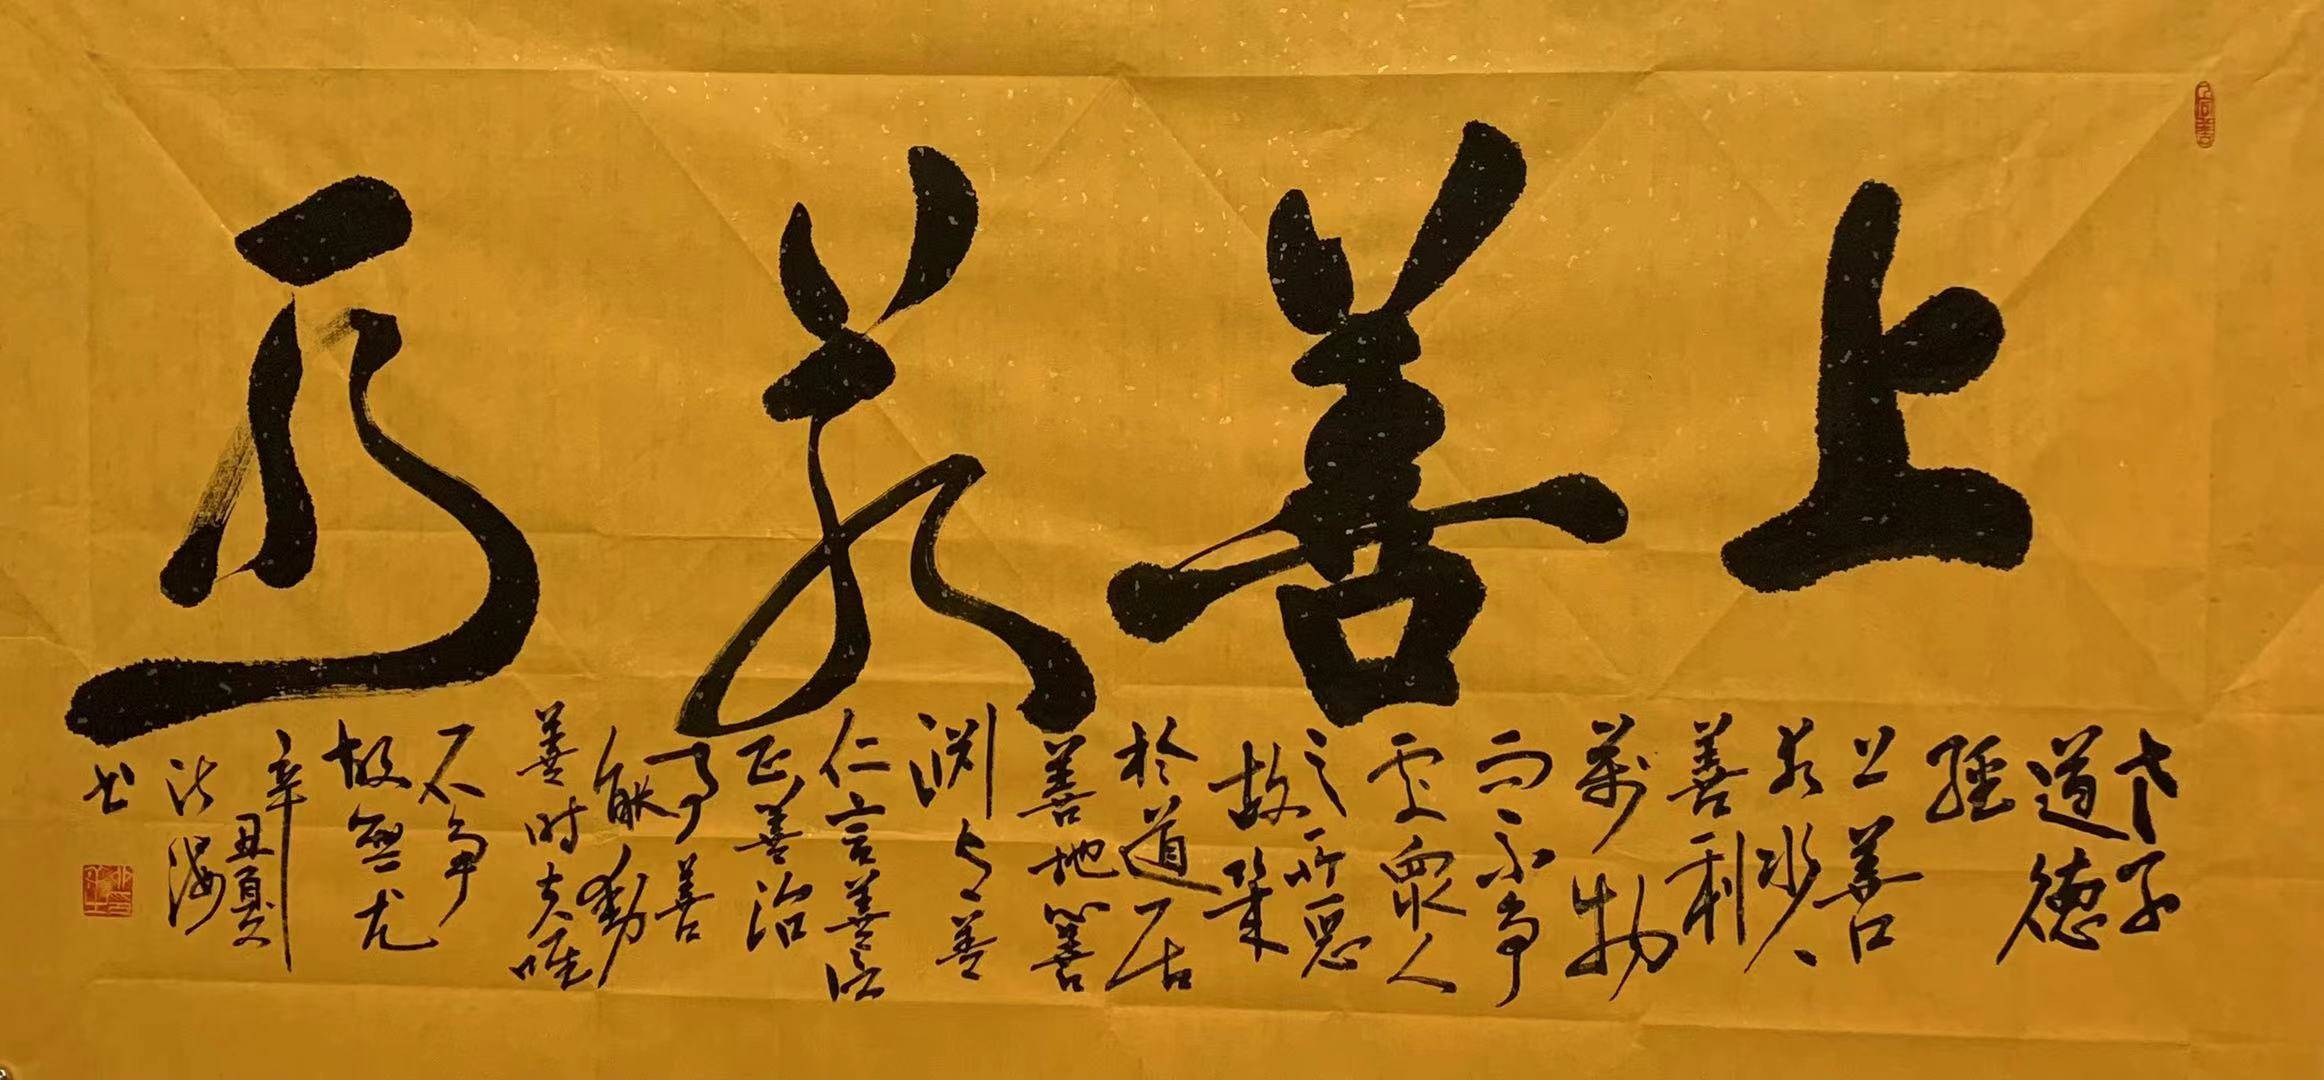 上善若水
老子
道德
經
上善
若水水
善利
萬物
而不争
處衆人
之所惡
故幾
於道居
善地心善
渊与善
仁言善信
正善治
事善
能動
善时夫唯
不争
故無尤
辛丑夏
海
书